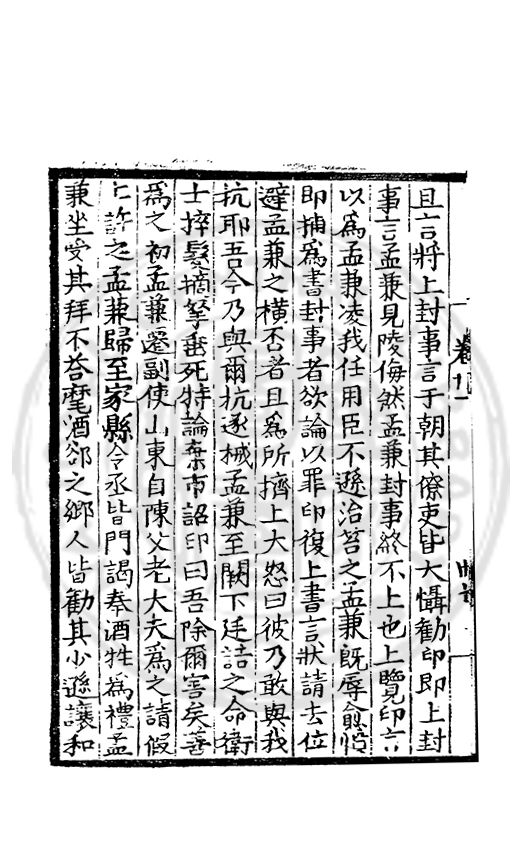 且言將上封事言于朝其僚吏皆大懾勸印即上封
事言孟兼見陵侮然孟兼封事終不上也上覽印言
以為孟兼凌我任用臣不遜治笞之孟兼既辱愈恚
即捕為書封事者欲論以罪印復上書言狀請去位
避孟兼之橫否者且為所擠上大怒曰彼乃敢與我
抗耶吾今乃與爾抗逐械孟兼至闕下廷詰之命衛
士捽髮摘拏垂死特論棄市詔印曰吾除爾害矣善
為之初孟兼遷副使山東自陳父老大夫為之請假
上許之孟兼歸至家縣令丞皆門謁奉酒牲為禮孟
兼坐受其拜不荅麾酒郤之鄉人皆勸其少遜讓和
卷十一